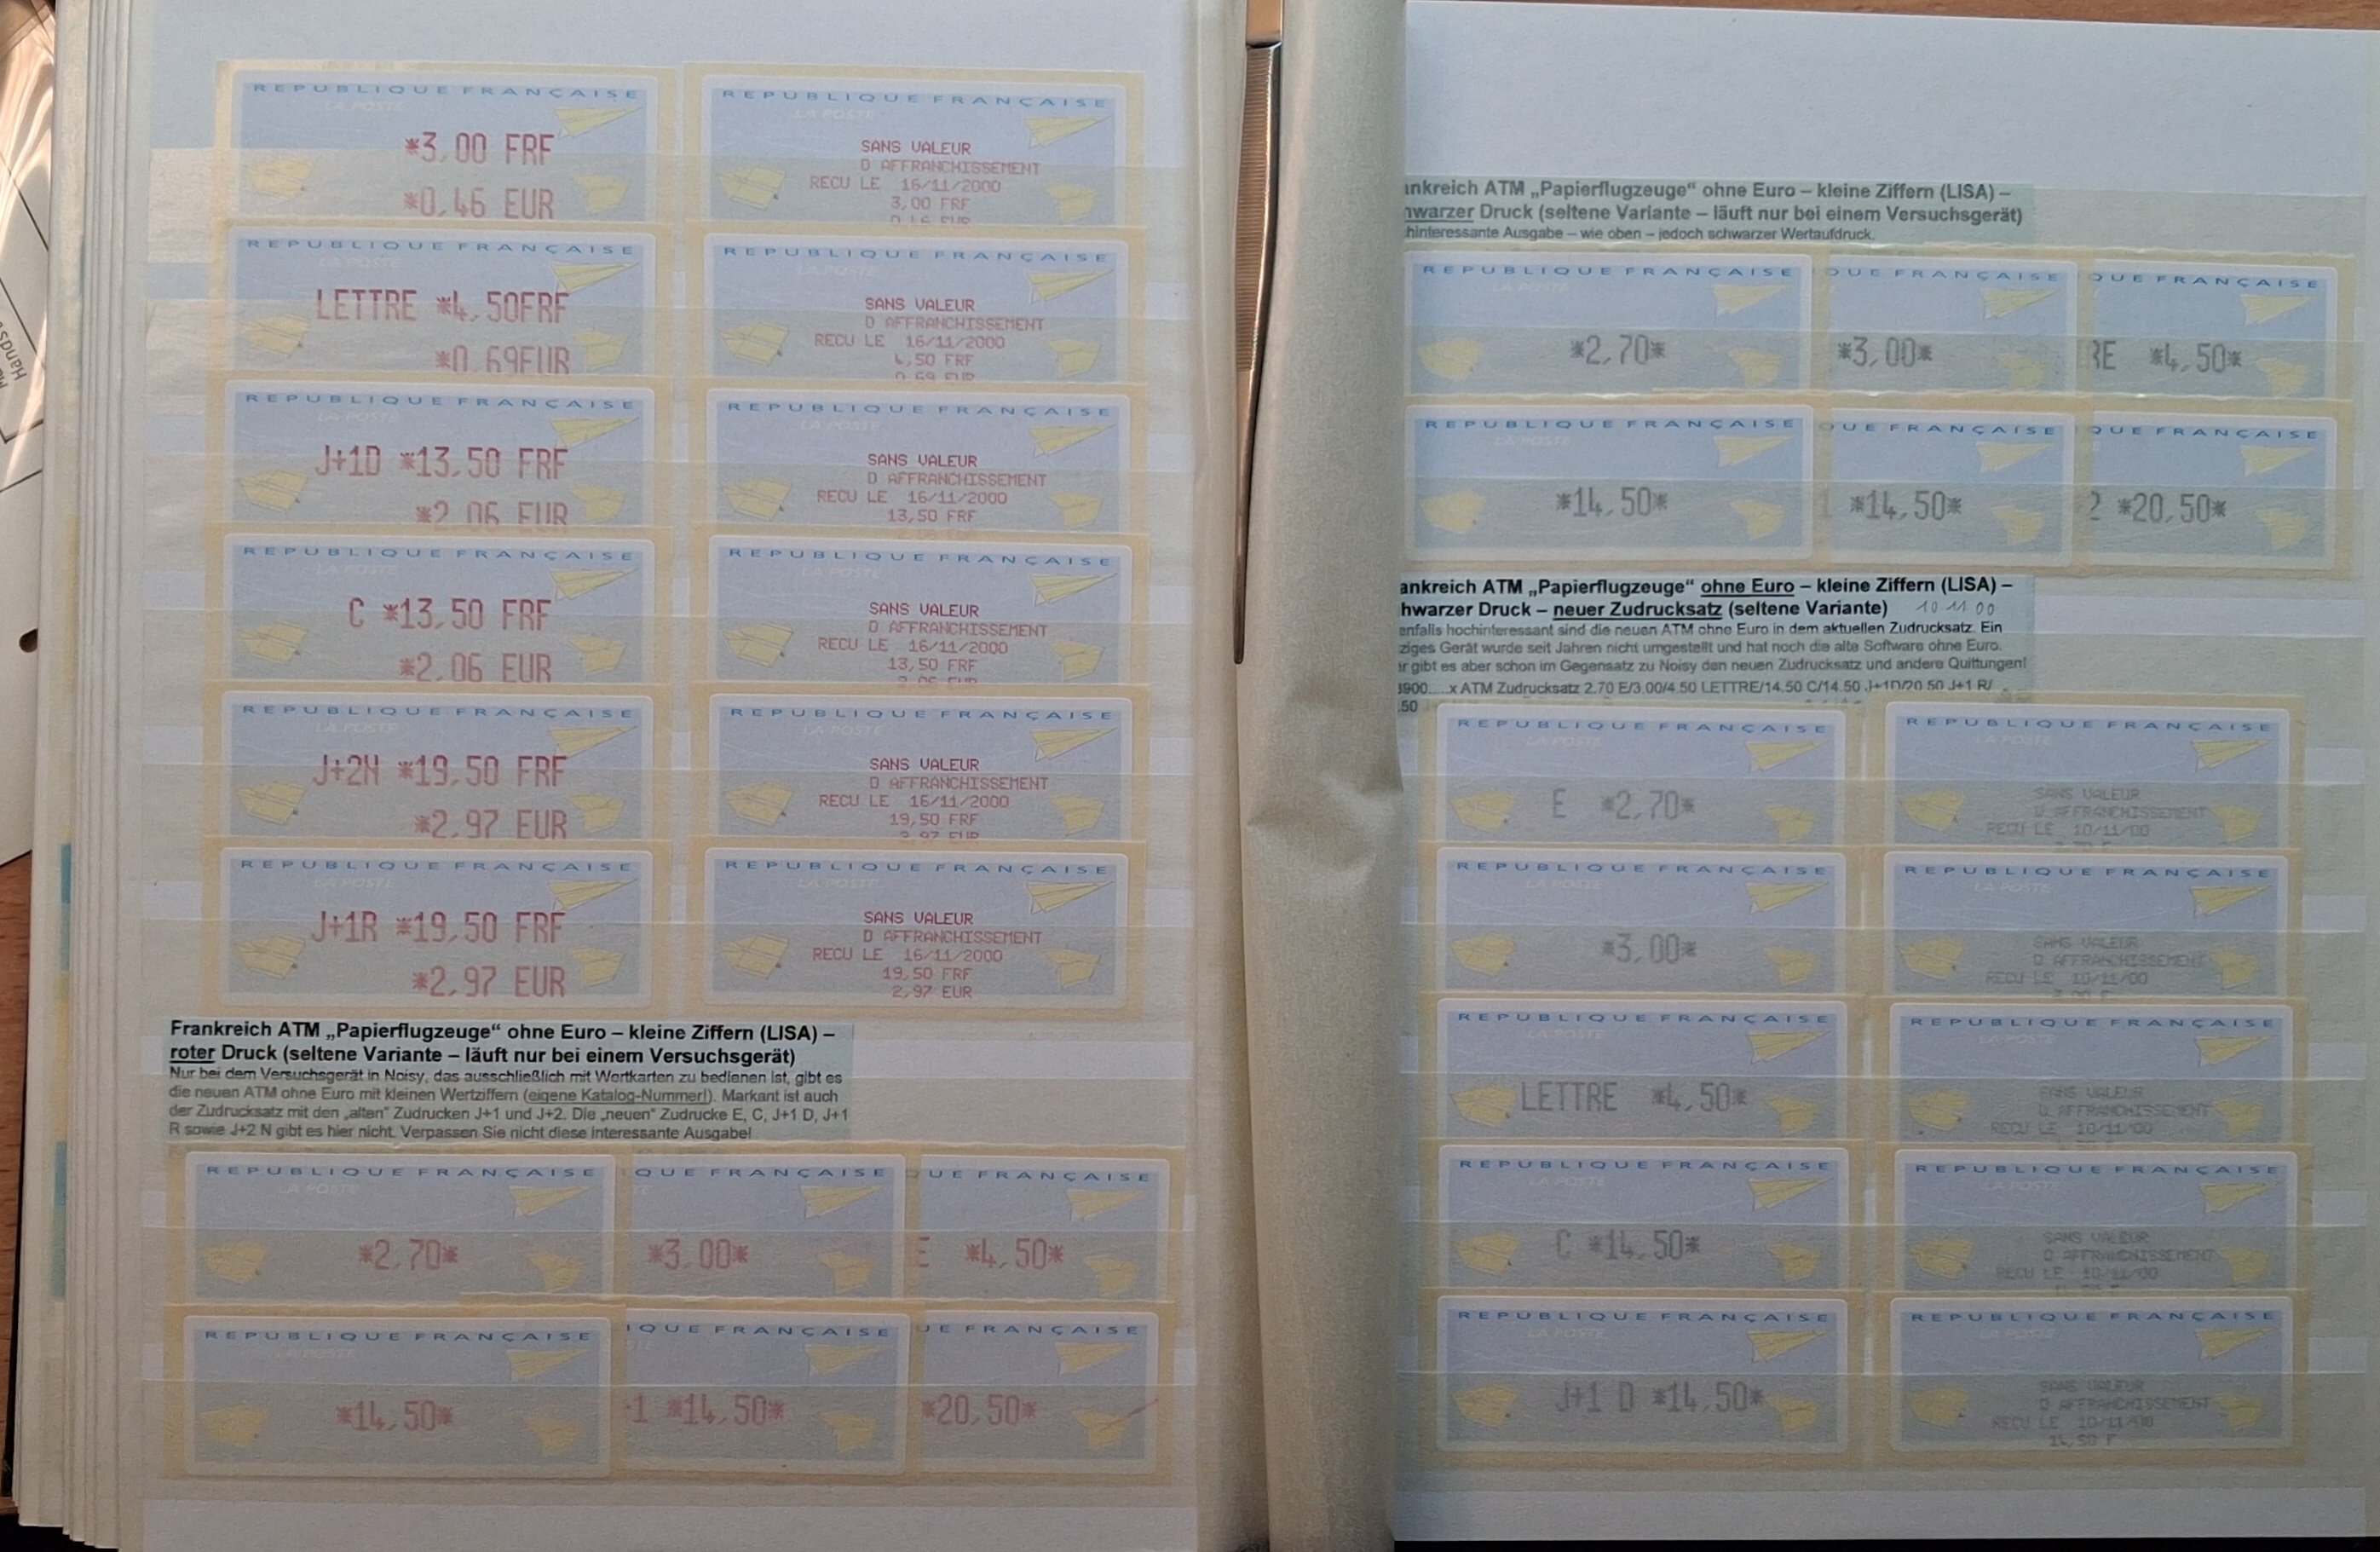 REPUBLIQUE FRANÇAISE
LA POSTE
*3,00 FRF
*0,46 EUR
REPUBLIQUE FRANÇAISE
LA POSTE
SANS VALEUR
D AFFRANCHISSEMENT
RECU LE 16/11/2000
3,00 FRF
0,46 EUR
REPUBLIQUE FRANÇAISE
LA POSTE
LETTRE *4,50FRF
*0,69EUR
REPUBLIQUE FRANÇAISE
LA POSTE
SANS VALEUR
D AFFRANCHISSEMENT
RECU LE 16/11/2000
4,50 FRF
0,69 EUR
REPUBLIQUE FRANÇAISE
LA POSTE
J+1D *13,50 FRF
*2,06 EUR
REPUBLIQUE FRANÇAISE
LA POSTE
SANS VALEUR
D AFFRANCHISSEMENT
RECU LE 16/11/2000
13,50 FRF
REPUBLIQUE FRANÇAISE
LA POSTE
C *13,50 FRF
*2,06 EUR
REPUBLIQUE FRANÇAISE
LA POSTE
SANS VALEUR
D AFFRANCHISSEMENT
RECU LE 16/11/2000
13,50 FRF
2,06 EUR
REPUBLIQUE FRANÇAISE
LA POSTE
J+2N *19,50 FRF
*2,97 EUR
REPUBLIQUE FRANÇAISE
LA POSTE
SANS VALEUR
D AFFRANCHISSEMENT
RECU LE 16/11/2000
19,50 FRF
2,97 EUR
REPUBLIQUE FRANÇAISE
LA POSTE
J+1R *19,50 FRF
*2,97 EUR
REPUBLIQUE FRANÇAISE
LA POSTE
SANS VALEUR
D AFFRANCHISSEMENT
RECU LE 16/11/2000
19,50 FRF
2,97 EUR
Frankreich ATM „Papierflugzeuge“ ohne Euro – kleine Ziffern (LISA) –
roter Druck (seltene Variante – läuft nur bei einem Versuchsgerät)
Nur bei dem Versuchsgerät in Noisy, das ausschließlich mit Wertkarten zu bedienen ist, gibt es
die neuen ATM ohne Euro mit kleinen Wertziffern (eigene Katalog-Nummer!). Markant ist auch
der Zudrucksatz mit den „alten“ Zudrucken J+1 und J+2. Die „neuen“ Zudrucke E, C, J+1 D, J+1
R sowie J+2 N gibt es hier nicht. Verpassen Sie nicht diese interessante Ausgabe!
REPUBLIQUE FRANÇAISE
LA POSTE
*2,70*
QUE FRANÇAISE
*3,00*
UE FRANÇAISE
E *4,50*
REPUBLIQUE FRANÇAISE
LA POSTE
*14,50*
IQUE FRANÇAISE
1 *14,50*
UE FRANÇAISE
*20,50*
ankreich ATM „Papierflugzeuge“ ohne Euro – kleine Ziffern (LISA) –
hwarzer Druck (seltene Variante – läuft nur bei einem Versuchsgerät)
hinteressante Ausgabe – wie oben – jedoch schwarzer Wertaufdruck.
REPUBLIQUE FRANÇAISE
LA POSTE
*2,70*
QUE FRANÇAISE
*3,00*
QUE FRANÇAISE
RE *4,50*
REPUBLIQUE FRANÇAISE
LA POSTE
*14,50*
QUE FRANÇAISE
*14,50*
QUE FRANÇAISE
2 *20,50*
ankreich ATM „Papierflugzeuge“ ohne Euro – kleine Ziffern (LISA) –
hwarzer Druck – neuer Zudrucksatz (seltene Variante) 10 11 00
enfalls hochinteressant sind die neuen ATM ohne Euro in dem aktuellen Zudrucksatz. Ein
ziges Gerät wurde seit Jahren nicht umgestellt und hat noch die alte Software ohne Euro.
r gibt es aber schon im Gegensatz zu Noisy den neuen Zudrucksatz und andere Quittungen!
3900.....x ATM Zudrucksatz 2.70 E/3.00/4.50 LETTRE/14.50 C/14.50 J+1D/20.50 J+1 R/
.50
REPUBLIQUE FRANÇAISE
LA POSTE
E *2,70*
REPUBLIQUE FRANÇAISE
LA POSTE
SANS VALEUR
D AFFRANCHISSEMENT
RECU LE 10/11/00
REPUBLIQUE FRANÇAISE
LA POSTE
*3,00*
REPUBLIQUE FRANÇAISE
LA POSTE
SANS VALEUR
D AFFRANCHISSEMENT
RECU LE 10/11/00
REPUBLIQUE FRANÇAISE
LA POSTE
LETTRE *4,50*
REPUBLIQUE FRANÇAISE
LA POSTE
SANS VALEUR
D AFFRANCHISSEMENT
RECU LE 10/11/00
REPUBLIQUE FRANÇAISE
LA POSTE
C *14,50*
REPUBLIQUE FRANÇAISE
LA POSTE
SANS VALEUR
D AFFRANCHISSEMENT
RECU LE 10/11/00
REPUBLIQUE FRANÇAISE
LA POSTE
J+1 D *14,50*
REPUBLIQUE FRANÇAISE
LA POSTE
SANS VALEUR
D AFFRANCHISSEMENT
RECU LE 10/11/00
14,50 F